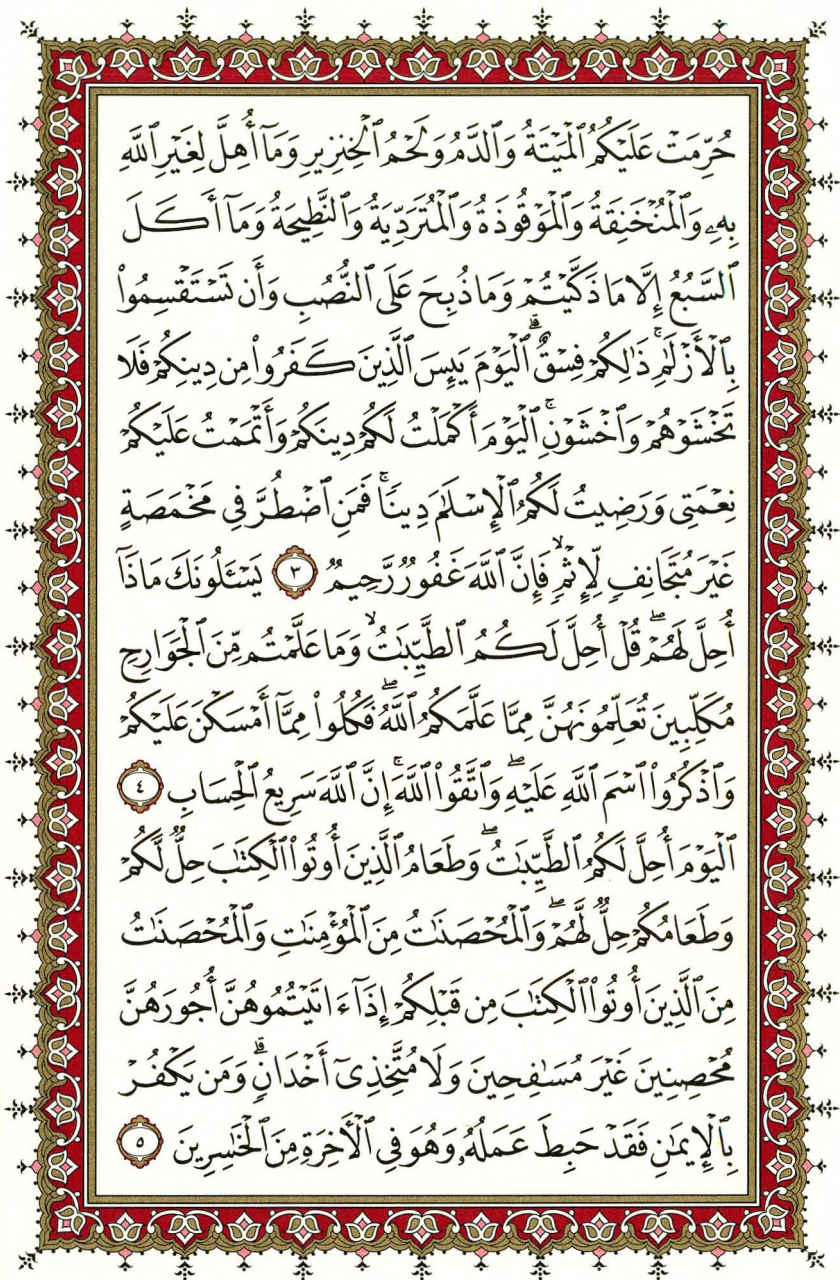 حُرِّمَتْ عَلَيْكُمُ ٱلْمَيْتَةُ وَٱلدَّمُ وَلَحْمُ ٱلْخِنزِيرِ وَمَآ أُهِلَّ لِغَيْرِ ٱللَّهِ
بِهِۦ وَٱلْمُنْخَنِقَةُ وَٱلْمَوْقُوذَةُ وَٱلْمُتَرَدِّيَةُ وَٱلنَّطِيحَةُ وَمَآ أَكَلَ
ٱلسَّبُعُ إِلَّا مَا ذَكَّيْتُمْ وَمَا ذُبِحَ عَلَى ٱلنُّصُبِ وَأَن تَسْتَقْسِمُوا۟
بِٱلْأَزْلَٰمِ ۚ ذَٰلِكُمْ فِسْقٌ ۗ ٱلْيَوْمَ يَئِسَ ٱلَّذِينَ كَفَرُوا۟ مِن دِينِكُمْ فَلَا
تَخْشَوْهُمْ وَٱخْشَوْنِ ۚ ٱلْيَوْمَ أَكْمَلْتُ لَكُمْ دِينَكُمْ وَأَتْمَمْتُ عَلَيْكُمْ
نِعْمَتِى وَرَضِيتُ لَكُمُ ٱلْإِسْلَٰمَ دِينًا ۚ فَمَنِ ٱضْطُرَّ فِى مَخْمَصَةٍ
غَيْرَ مُتَجَانِفٍ لِّإِثْمٍ ۙ فَإِنَّ ٱللَّهَ غَفُورٌ رَّحِيمٌ ٣ يَسْـَٔلُونَكَ مَاذَآ
أُحِلَّ لَهُمْ ۖ قُلْ أُحِلَّ لَكُمُ ٱلطَّيِّبَٰتُ ۙ وَمَا عَلَّمْتُم مِّنَ ٱلْجَوَارِحِ
مُكَلِّبِينَ تُعَلِّمُونَهُنَّ مِمَّا عَلَّمَكُمُ ٱللَّهُ ۖ فَكُلُوا۟ مِمَّآ أَمْسَكْنَ عَلَيْكُمْ
وَٱذْكُرُوا۟ ٱسْمَ ٱللَّهِ عَلَيْهِ ۖ وَٱتَّقُوا۟ ٱللَّهَ ۚ إِنَّ ٱللَّهَ سَرِيعُ ٱلْحِسَابِ ٤
ٱلْيَوْمَ أُحِلَّ لَكُمُ ٱلطَّيِّبَٰتُ ۖ وَطَعَامُ ٱلَّذِينَ أُوتُوا۟ ٱلْكِتَٰبَ حِلٌّ لَّكُمْ
وَطَعَامُكُمْ حِلٌّ لَّهُمْ ۖ وَٱلْمُحْصَنَٰتُ مِنَ ٱلْمُؤْمِنَٰتِ وَٱلْمُحْصَنَٰتُ
مِنَ ٱلَّذِينَ أُوتُوا۟ ٱلْكِتَٰبَ مِن قَبْلِكُمْ إِذَآ ءَاتَيْتُمُوهُنَّ أُجُورَهُنَّ
مُحْصِنِينَ غَيْرَ مُسَٰفِحِينَ وَلَا مُتَّخِذِىٓ أَخْدَانٍ ۗ وَمَن يَكْفُرْ
بِٱلْإِيمَٰنِ فَقَدْ حَبِطَ عَمَلُهُۥ وَهُوَ فِى ٱلْأَخِرَةِ مِنَ ٱلْخَٰسِرِينَ ٥